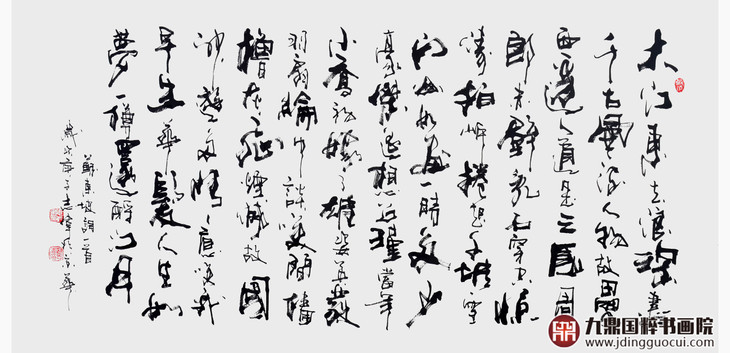 大江東去浪淘盡
千古風流人物故壘
西邊人道是三國周
郎赤壁亂石穿空驚
濤拍岸捲起千堆雪
江山如畫一時多少
豪傑遥想公瑾當年
小喬初嫁了雄姿英發
羽扇綸巾談笑間檣
櫓灰飛煙滅故國
神遊多情應笑我
早生華髮人生如
夢一樽還酹江月
蘇東坡詞一首
歲次庚子於京華
九鼎国粹书画院
www.jdingguocui.com